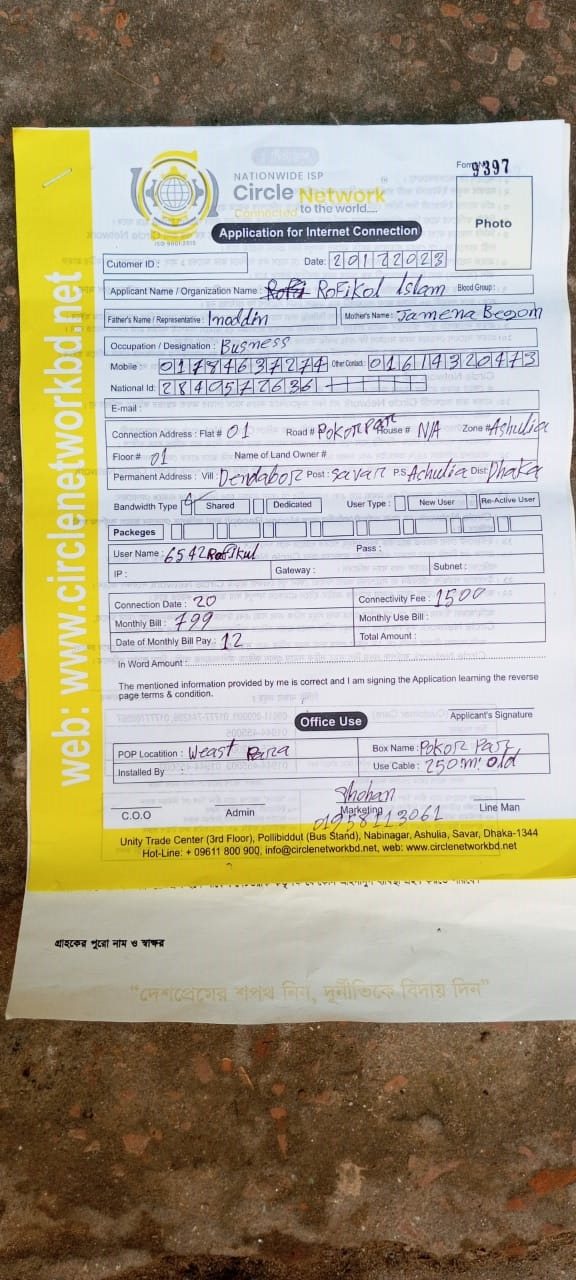 Form No 9397
NATIONWIDE ISP
Circle Network
Connected to the world....
ISO 9001:2015
Photo
Application for Internet Connection
Cutomer ID : Date: 20122023
Applicant Name / Organization Name : Rofikol Islam Blood Group :
Father's Name / Representative : Imoddin Mother's Name : Jamena Begom
Occupation / Designation : Busness
Mobile : 01784637274 Other Contact : 01614320473
National Id: 2849572636
E-mail :
Connection Address : Flat # 01 Road # Pokor Par House # N/A Zone # Ashulia
Floor # 01 Name of Land Owner #
Permanent Address : Vill: Dendabor Post : Savar P.S Achulia Dist: Dhaka
Bandwidth Type Shared Dedicated User Type : New User Re-Active User
Packeges
User Name : 6542Rofikul Pass :
IP : Gateway : Subnet :
Connection Date : 20 Connectivity Fee : 1500
Monthly Bill : 799 Monthly Use Bill :
Date of Monthly Bill Pay : 12 Total Amount :
In Word Amount :
The mentioned information provided by me is correct and I am signing the Application learning the reverse
page terms & condition.
Applicant's Signature
Office Use
POP Locatition : Weast Para Box Name : Pokor Par
Installed By : Use Cable : 250m. old
Shohan
C.O.O Admin Marketing Line Man
01958113061
Unity Trade Center (3rd Floor), Pollibiddut (Bus Stand), Nabinagar, Ashulia, Savar, Dhaka-1344
Hot-Line: + 09611 800 900, info@circlenetworkbd.net, web: www.circlenetworkbd.net
web: www.circlenetworkbd.net
গ্রাহকের পুরো নাম ও স্বাক্ষর
“দেশপ্রেমের শপথ নিন, দূর্নীতিকে বিদায় দিন”